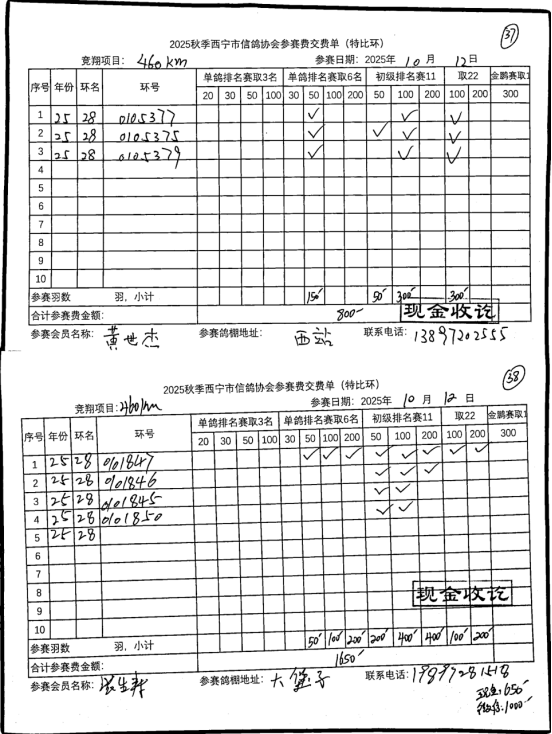 37
2025秋季西宁市信鸽协会参赛费交费单（特比环）
竞翔项目：460km 参赛日期：2025年10月12日
序号 年份 环名 环号 单鸽排名赛取3名 单鸽排名赛取6名 初级排名赛11 取22 金鹏赛取1
20 30 50 100 30 50 100 200 50 100 200 100 200 300
1 25 28 0105377 ✓ ✓ ✓
2 25 28 0105375 ✓ ✓ ✓ ✓
3 25 28 0105379 ✓ ✓ ✓
4
5
6
7
8
9
10
参赛羽数 羽，小计 150 50 300 300
合计参赛费金额： 800 现金收讫
参赛会员名称：黄世杰 参赛鸽棚地址：西站 联系电话：13897202555
38
2025秋季西宁市信鸽协会参赛费交费单（特比环）
竞翔项目：460km 参赛日期：2025年10月12日
序号 年份 环名 环号 单鸽排名赛取3名 单鸽排名赛取6名 初级排名赛11 取22 金鹏赛取1
20 30 50 100 30 50 100 200 50 100 200 100 200 300
1 25 28 0101847 ✓ ✓ ✓ ✓ ✓ ✓ ✓ ✓
2 25 28 0101846 ✓ ✓ ✓
3 25 28 0101845 ✓ ✓
4 25 28 0101850 ✓ ✓
5 25 28
6
7
8
9
10
现金收讫
参赛羽数 羽，小计 50 100 200 200 400 400 100 200
合计参赛费金额： 1650
参赛会员名称：张生 参赛鸽棚地址：大堡子 联系电话：
现金：650
1000